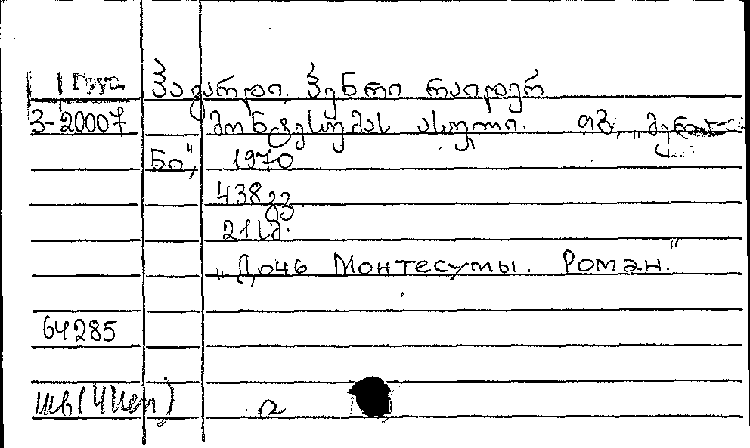 ჰაგარდი, ჰენრი რაიდერ
3-20007 მონტესუმას ასული. თბ., „მერა-
ნი", 1970
438 გვ.
21 სმ.
„Дочь Монтесумы. Роман."
64285